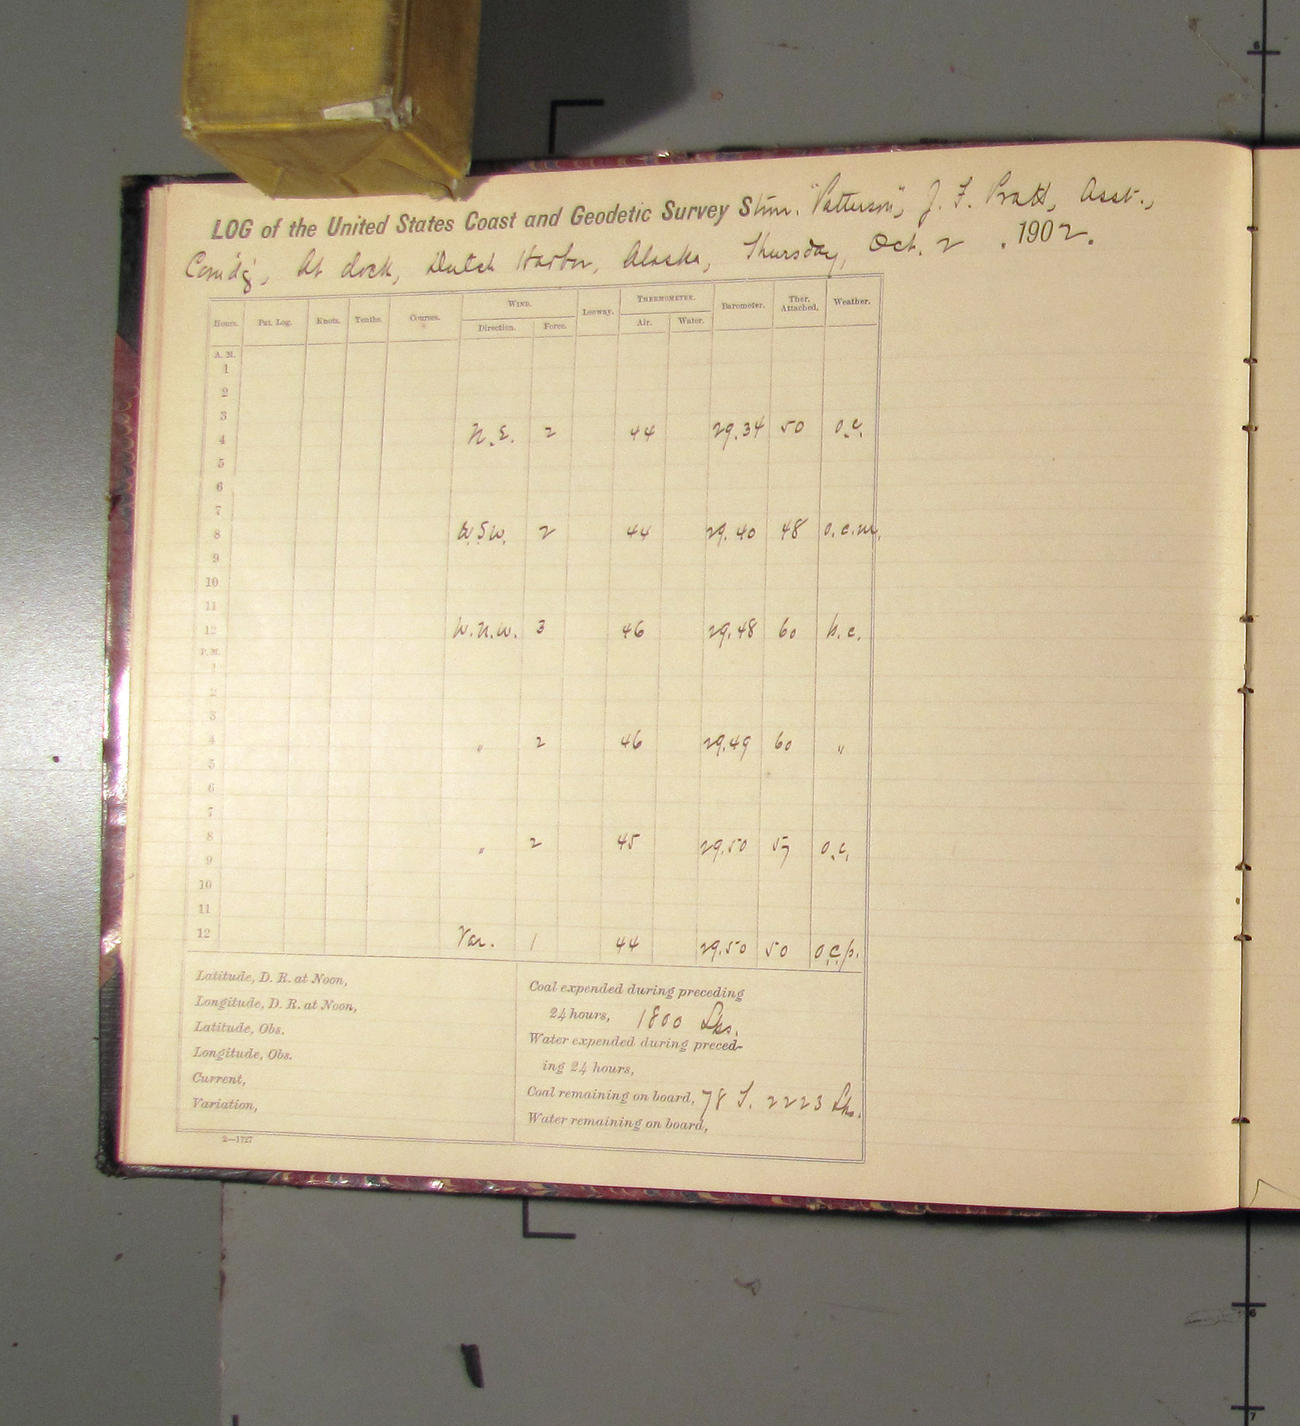 LOG of the United States Coast and Geodetic Survey Stmr. "Patterson", J. F. Pratt, Asst.,
Comd'g, At dock, Dutch Harbor, Alaska, Thursday, Oct. 2, 1902.
Hours. Pat. Log. Knots. Tenths. Courses. WIND. Leeway. THERMOMETER. Barometer. Ther. Attached. Weather.
Direction. Force. Air. Water.
A. M.
1
2
3
4 N.E. 2 44 29.34 50 o.c.
5
6
7
8 W.S.W. 2 44 29.40 48 o.c.m.
9
10
11
12 W.N.W. 3 46 29.48 60 b.c.
P. M.
1
2
3
4 " 2 46 29.49 60 "
5
6
7
8 " 2 45 29.50 57 o.c.
9
10
11
12 Var. 1 44 29.50 50 o.c.p.
Latitude, D. R. at Noon,
Longitude, D. R. at Noon,
Latitude, Obs.
Longitude, Obs.
Current,
Variation,
Coal expended during preceding
24 hours, 1800 Lbs.
Water expended during preced-
ing 24 hours,
Coal remaining on board, 78 T. 2223 Lbs.
Water remaining on board,
2—1727
6
6
7